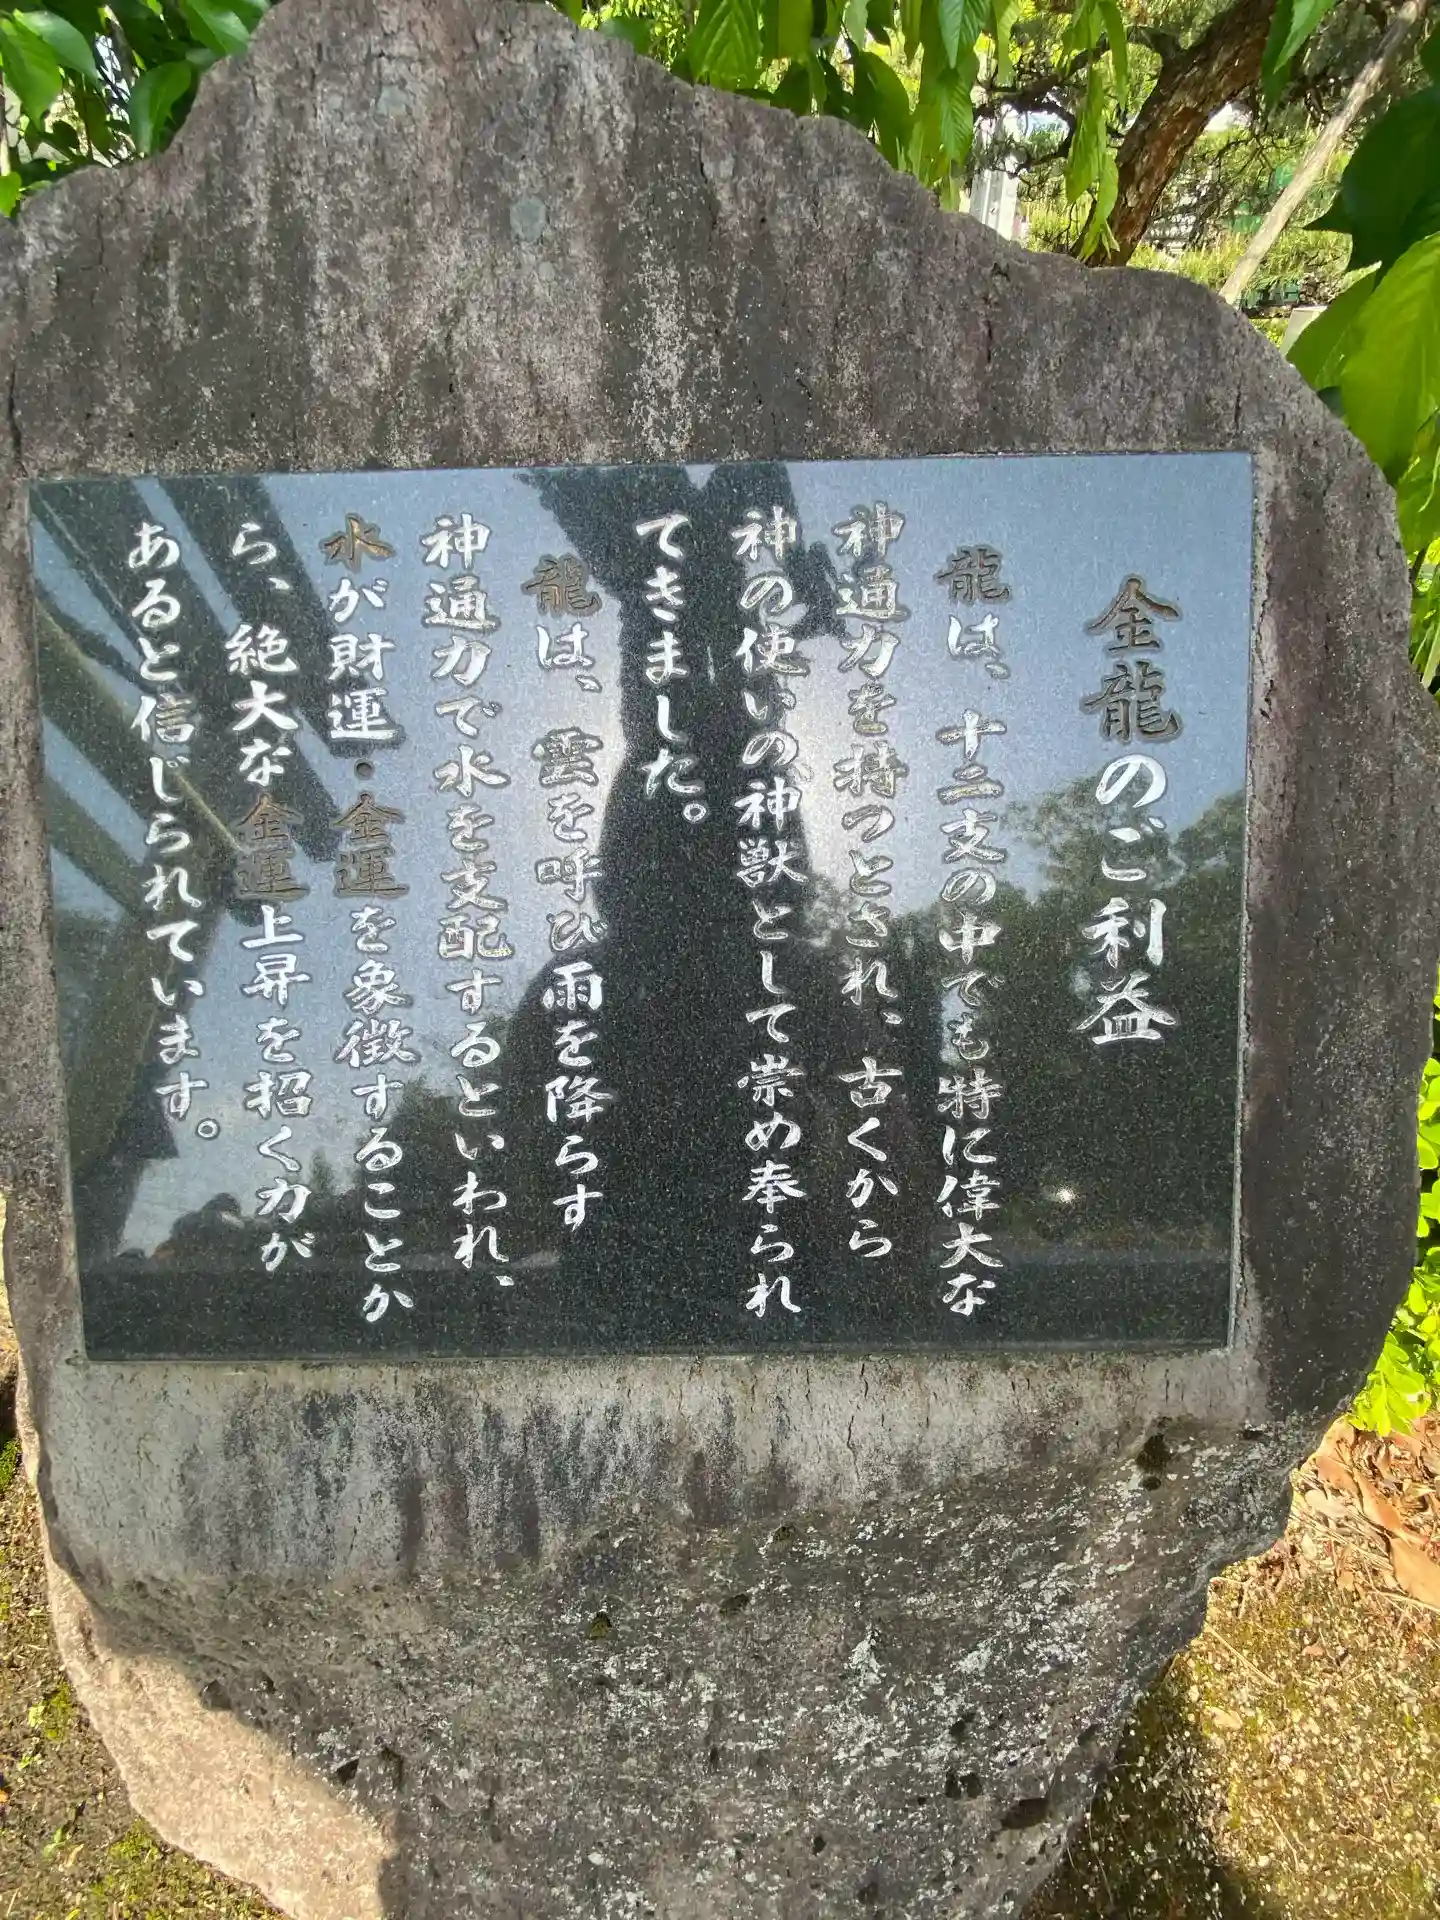 金龍のご利益
龍は、十二支の中でも特に偉大な
神通力を持つとされ、古くから
神の使いの神獣として崇め奉られ
てきました。
龍は、雲を呼び雨を降らす
神通力で水を支配するといわれ、
水が財運・金運を象徴することか
ら、絶大な金運上昇を招く力が
あると信じられています。